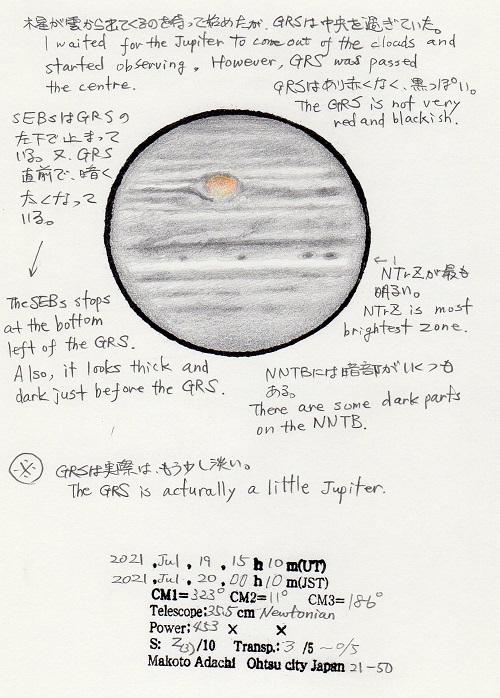 木星が雲から出てくるのを待って始めたが、GRSは中央を過ぎていた。
I waited for the Jupiter to come out of the clouds and
started observing. However, GRS was passed
the centre.
GRSはあり赤くなく、黒っぽい。
The GRS is not very
red and blackish.
SEBsはGRSの
左下で止まって
いる。又、GRS
直前で、暗く
太くなって
いる。
The SEBs stops
at the bottom
left of the GRS.
Also, it looks thick and
dark just before the GRS.
NTrZが最も
明るい。
NTrZ is most
brightest zone.
NNTBには暗部がいくつも
ある。
There are some dark parts
on the NNTB.
※ GRSは実際は、もう少し淡い。
The GRS is acturally a little Jupiter.
2021, Jul, 19, 15 h 10 m(UT)
2021, Jul, 20, 00 h 10 m(JST)
CM1=323° CM2=11° CM3=186°
Telescope: 35.5 cm Newtonian
Power: 453 × ×
S: 2(3)/10 Transp.: 3 /5 ~0/5
Makoto Adachi Ohtsu city Japan 21-50